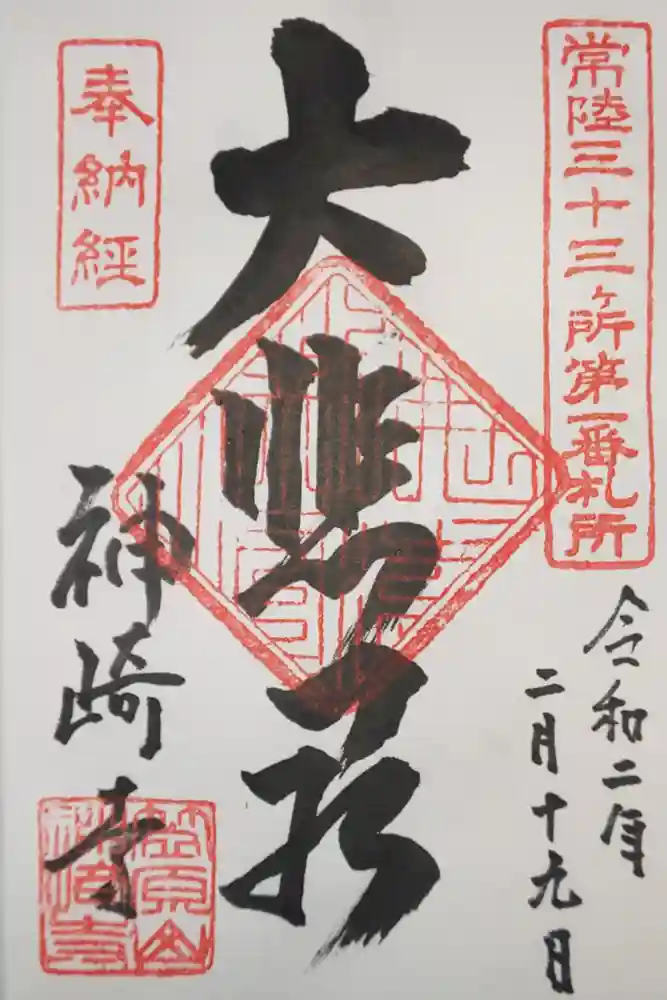 常陸三十三ヶ所第一番札所
令和二年
二月十九日
奉納経
大悲殿
神崎寺
笠原山
神崎寺